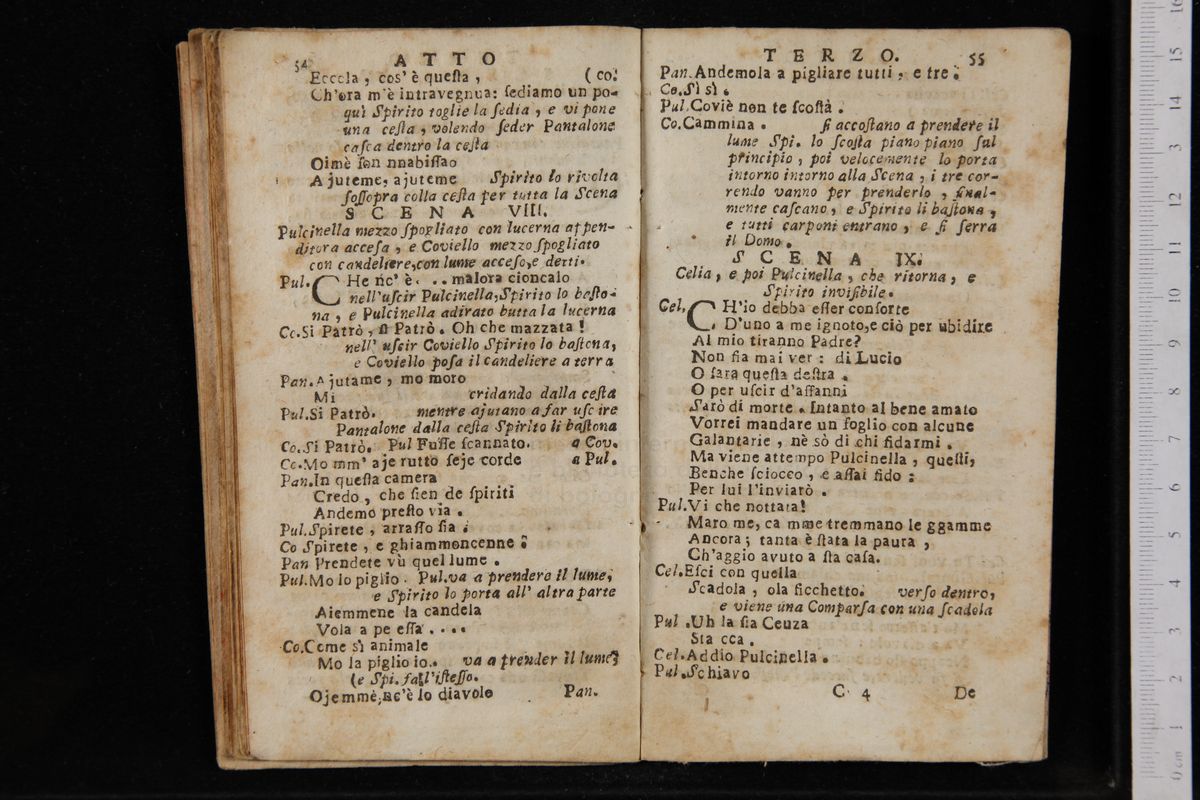 54 ATTO
Eccola, cos' è questa, (co.
Ch'ora m'è intravegnua: sediamo un po-
qui Spirito toglie la sedia, e vi pone
una cesta, volendo seder Pantalone
casca dentro la cesta
Oimè son nnabissao
Ajuteme, ajuteme Spirito lo rivolta
sossopra colla cesta per tutta la Scena
SCENA VIII.
Pulcinella mezzo spogliato con lucerna appen-
ditora accesa, e Coviello mezzo spogliato
con candeliere, con lume acceso, e detti.
Pul. CHe nc' è . . . malora cioncalo
nell'uscir Pulcinella, Spirito lo basto-
na, e Pulcinella adirato butta la lucerna
Co. Si Patrò, si Patrò. Oh che mazzata!
nell' uscir Coviello Spirito lo bastona,
e Coviello posa il candeliere a terra
Pan. Ajutame, mo moro
Mi cridando dalla cesta
Pul. Si Patrò. mentre ajutano a far uscire
Pantalone dalla cesta Spirito li bastona
Co. Si Patrò. Pul Fusse scannato. a Cov.
Co. Mo mm' aje rutto seje corde a Pul.
Pan. In questa camera
Credo, che sien de spiriti
Andemo presto via.
Pul. Spirete, arrasso sia.
Co Spirete, e ghiammoncenne.
Pan Prendete vù quel lume.
Pul. Mo lo piglio. Pul. va a prendere il lume,
e Spirito lo porta all' altra parte
Aiemmene la candela
Vola a pe essa . . . .
Co. Come sì animale
Mo la piglio io. va a prender il lume,
(e Spi. fa l'istesso.
Ojemmè, nc'è lo diavolo Pan.
TERZO. 55
Pan. Andemola a pigliare tutti, e tre.
Co. Sì sì.
Pul. Coviè non te scostà.
Co. Cammina. si accostano a prendere il
lume Spi. lo scosta piano piano sul
principio, poi velocemente lo porta
intorno intorno alla Scena, i tre cor-
rendo vanno per prenderlo, final-
mente cascano, e Spirito li bastona,
e tutti carponi entrano, e si serra
il Domo.
SCENA IX.
Celia, e poi Pulcinella, che ritorna, e
Spirito invisibile.
Cel. CH'io debba esser consorte
D'uno a me ignoto, e ciò per ubidire
Al mio tiranno Padre?
Non sia mai ver: di Lucio
O sara questa destra.
O per uscir d'affanni
Sarò di morte. Intanto al bene amato
Vorrei mandare un foglio con alcune
Galantarie, nè sò di chi fidarmi.
Ma viene attempo Pulcinella, questi,
Benche sciocco, è assai fido:
Per lui l'inviarò.
Pul. Vi che nottata!
Maro me, ca mme tremmano le ggamme
Ancora; tanta è stata la paura,
Ch'aggio avuto a sta casa.
Cel. Esci con quella
Scadola, ola ficchetto. verso dentro,
e viene una Comparsa con una scadola
Pul. Uh la sia Ceuza
Sta cca.
Cel. Addio Pulcinella.
Pul. Schiavo
C 4 De